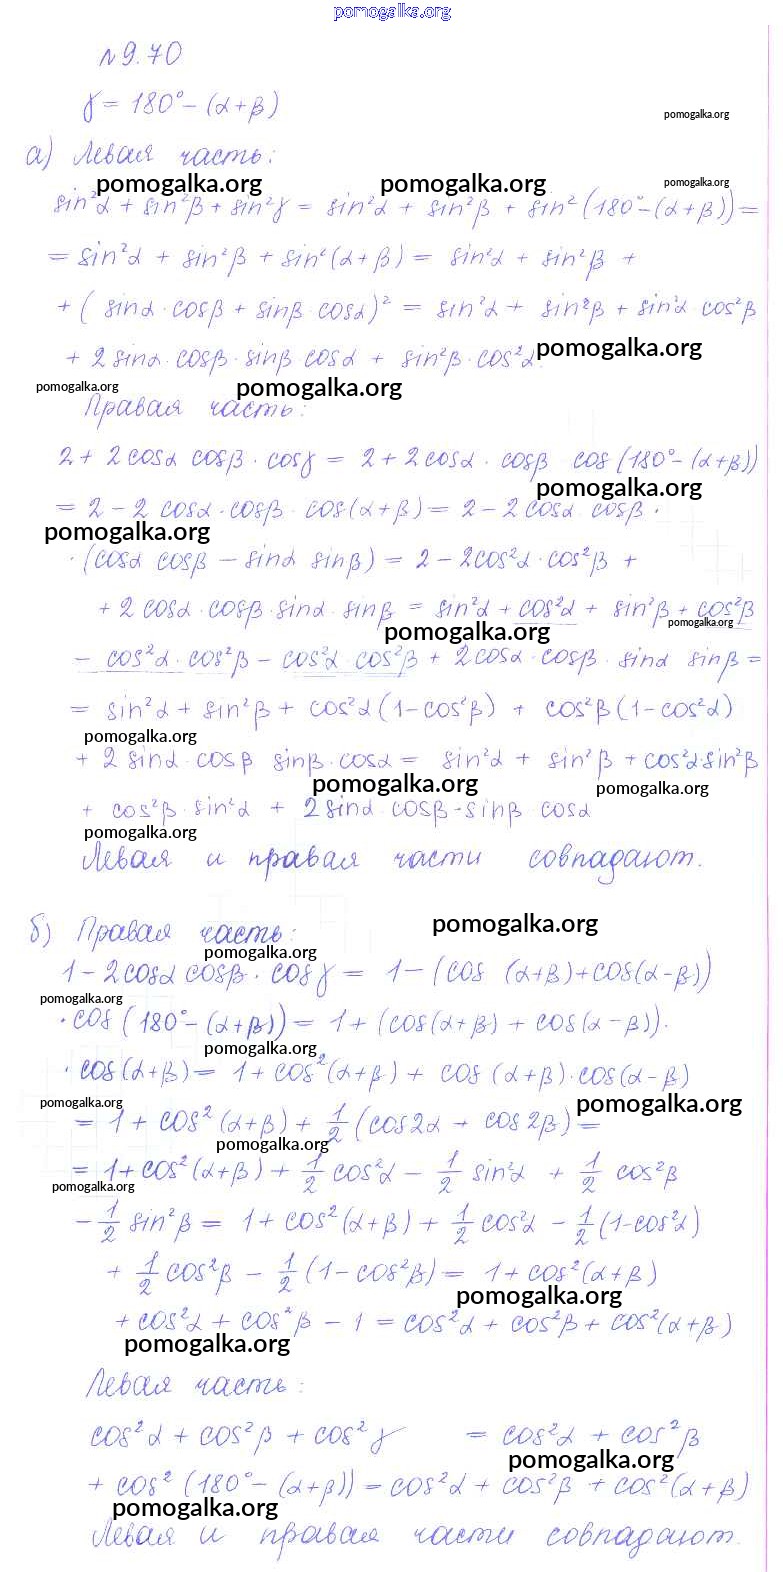 pomogalka.org
№ 9.70
γ = 180° - (α+β)
pomogalka.org
а) Левая часть:
pomogalka.org pomogalka.org pomogalka.org
sin²α + sin²β + sin²γ = sin²α + sin²β + sin²(180° - (α+β)) =
= sin²α + sin²β + sin²(α+β) = sin²α + sin²β +
+ (sinα · cosβ + sinβ · cosα)² = sin²α + sin²β + sin²α · cos²β
+ 2 sinα · cosβ · sinβ · cosα + sin²β · cos²α.
pomogalka.org
pomogalka.org pomogalka.org
Правая часть:
2 + 2 cosα cosβ · cosγ = 2 + 2 cosα · cosβ cos(180° - (α+β))
pomogalka.org
= 2 - 2 cosα · cosβ · cos(α+β) = 2 - 2 cosα cosβ ·
pomogalka.org
· (cosα cosβ - sinα sinβ) = 2 - 2cos²α · cos²β +
+ 2 cosα · cosβ · sinα · sinβ = sin²α + cos²α + sin²β + cos²β
pomogalka.org pomogalka.org
- cos²α · cos²β - cos²α · cos²β + 2cosα · cosβ · sinα sinβ =
= sin²α + sin²β + cos²α (1-cos²β) + cos²β (1-cos²α)
pomogalka.org
+ 2 sinα · cosβ sinβ · cosα = sin²α + sin²β + cos²α·sin²β
pomogalka.org pomogalka.org
+ cos²β · sin²α + 2 sinα · cosβ · sinβ cosα
pomogalka.org
Левая и правая части совпадают.
б) Правая часть:
pomogalka.org
pomogalka.org
1 - 2cosα cosβ · cosγ = 1 - (cos (α+β) + cos(α-β))
pomogalka.org
· cos (180° - (α+β)) = 1 + (cos(α+β) + cos(α-β)) ·
pomogalka.org
· cos(α+β) = 1 + cos²(α+β) + cos (α+β) · cos(α-β)
pomogalka.org pomogalka.org
= 1 + cos²(α+β) + 1/2 (cos2α + cos2β) =
pomogalka.org
= 1 + cos²(α+β) + 1/2 cos²α - 1/2 sin²α + 1/2 cos²β
pomogalka.org
- 1/2 sin²β = 1 + cos²(α+β) + 1/2 cos²α - 1/2 (1-cos²α)
+ 1/2 cos²β - 1/2 (1-cos²β) = 1 + cos²(α+β)
pomogalka.org
+ cos²α + cos²β - 1 = cos²α + cos²β + cos²(α+β)
pomogalka.org
Левая часть:
cos²α + cos²β + cos²γ = cos²α + cos²β
pomogalka.org
+ cos² (180° - (α+β)) = cos²α + cos²β + cos²(α+β)
pomogalka.org
Левая и правая части совпадают.